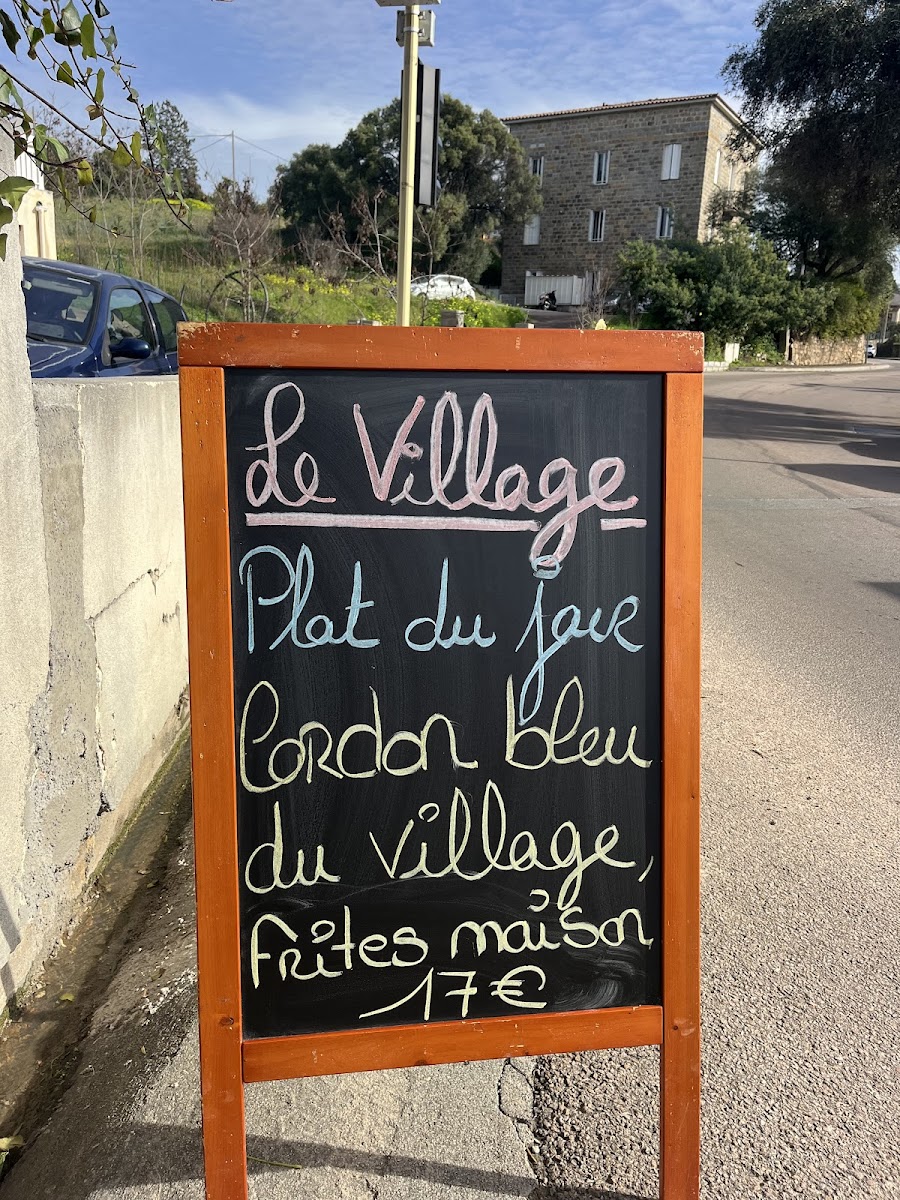 Le Village
Plat du jour
Cordon bleu
du village,
Frites maison
17€